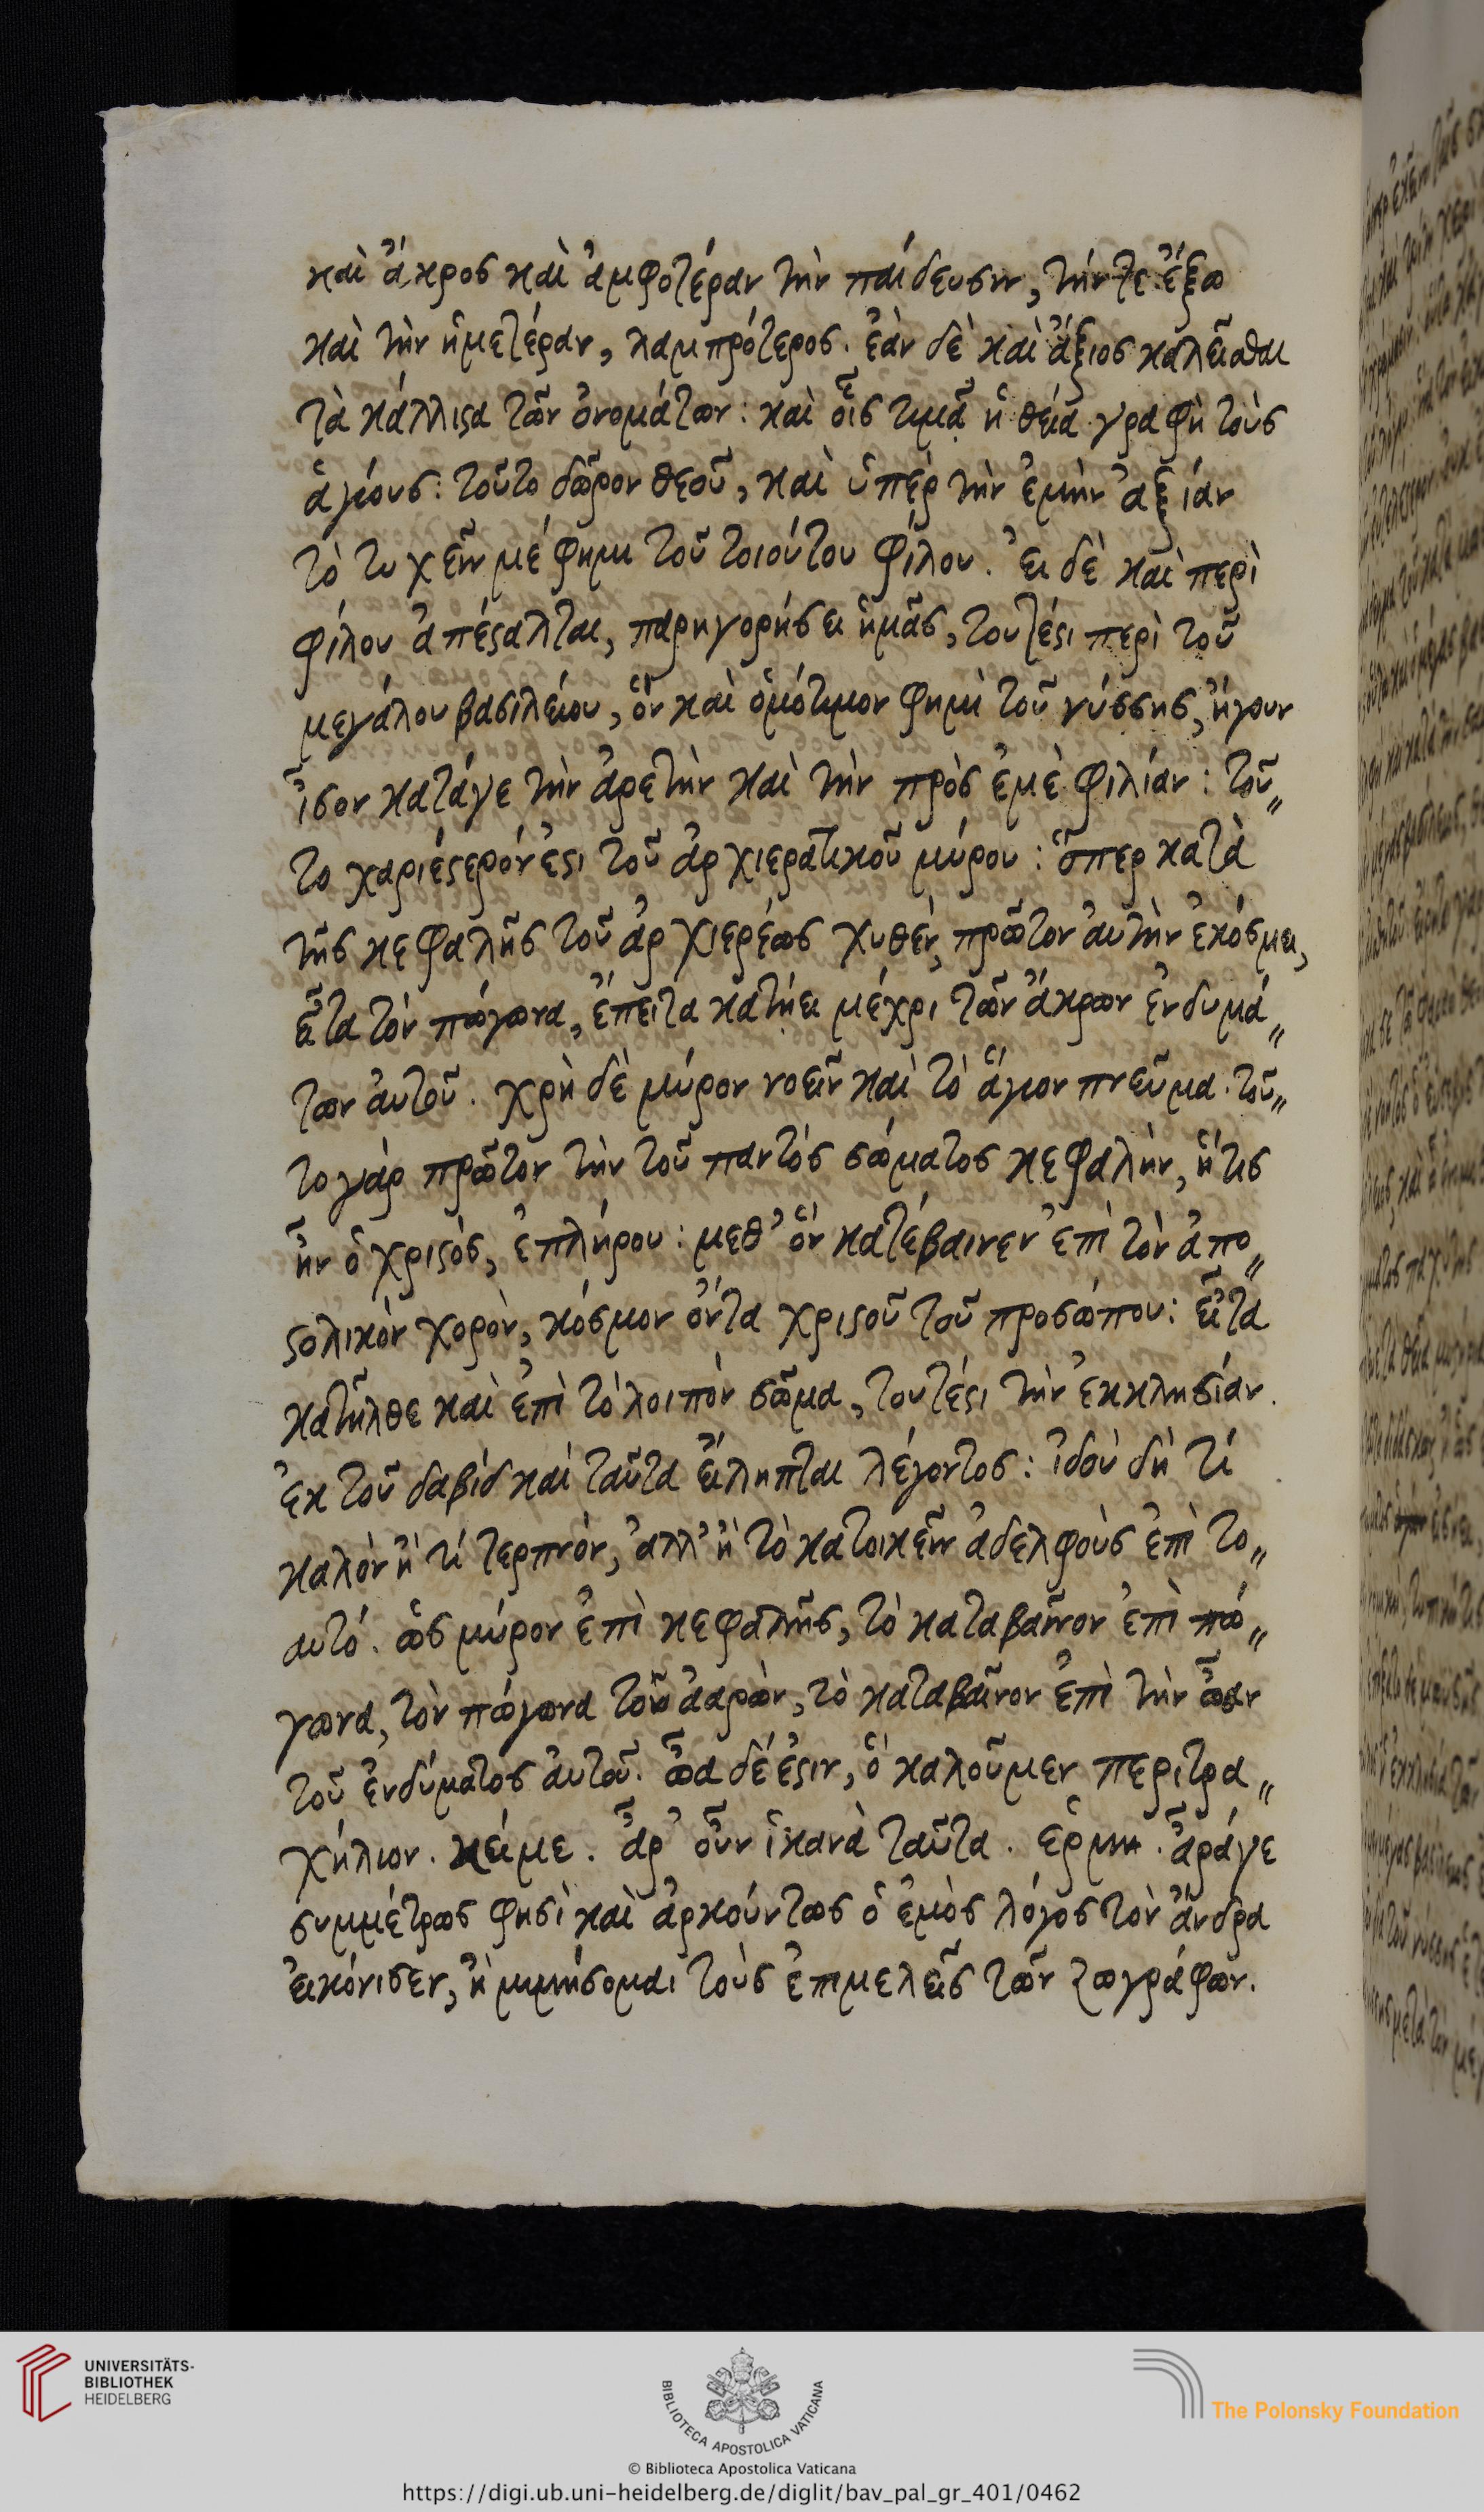 καὶ ἄκρος καὶ ἀμφοτέραν τὴν παίδευσιν, τήν τε ἔξω
καὶ τὴν ἡμετέραν, λαμπρότερος. ἐὰν δὲ καὶ ἄξιος καλεῖσθαι
τὰ κάλλιϛα τῶν ὀνομάτων: καὶ οἷς τιμᾷ ἡ θεία γραφὴ τοὺς
ἁγίους: τοῦτο δῶρον θεοῦ, καὶ ὑπὲρ τὴν ἐμὴν ἀξίαν
τὸ τυχεῖν μέ φημι τοῦ τοιούτου φίλου. εἰ δὲ καὶ περὶ
φίλου ἀπέϛαλται, παρηγορήσει ἡμᾶς, τουτέϛι περὶ τοῦ
μεγάλου βασιλείου, ὃν καὶ ὁμότιμον φημὶ τοῦ νύσσης, ἤγουν
ἶσον κατάγε τὴν ἀρετὴν καὶ τὴν πρὸς ἐμὲ φιλίαν: τοῦ〃
το χαριέϛερόν ἐϛι τοῦ ἀρχιερατικοῦ μύρου: ὅπερ κατὰ
τῆς κεφαλῆς τοῦ ἀρχιερέως χυθὲν, πρῶτον αὐτὴν ἐκόσμει,
εἶτα τὸν πώγωνα, ἔπειτα κατήει μέχρι τῶν ἄκρων ἐνδυμά〃
των αὐτοῦ. χρὴ δὲ μύρον νοεῖν καὶ τὸ ἅγιον πνεῦμα. τοῦ〃
το γὰρ πρῶτον τὴν τοῦ παντὸς σώματος κεφαλὴν, ἥτις
ἦν ὁ χριϛὸς, ἐπλήρου: μεθ' ὃν κατέβαινεν ἐπὶ τὸν ἀπο〃
ϛολικὸν χορὸν, κόσμον ὄντα χριϛοῦ τοῦ προσώπου: εἶτα
κατῆλθε καὶ ἐπὶ τὸ λοιπὸν σῶμα, τουτέϛι τὴν ἐκκλησίαν.
ἐκ τοῦ δαβὶδ καὶ ταῦτα εἴληπται λέγοντος: ἰδοὺ δὴ τί
καλὸν ἢ τί τερπνὸν, ἀλλ' ἢ τὸ κατοικεῖν ἀδελφοὺς ἐπὶ το〃
αυτό. ὡς μύρον ἐπὶ κεφαλῆς, τὸ καταβαῖνον ἐπὶ πώ〃
γωνα, τὸν πώγωνα τοῦ ἀαρὼν, τὸ καταβαῖνον ἐπὶ τὴν ὦαν
τοῦ ἐνδύματος αὐτοῦ. ὦα δέ ἐϛιν, ὃ καλοῦμεν περιτρα〃
χήλιον. κείμε. ἆρ' οὖν ἱκανὰ ταῦτα. ἑρμη. ἆράγε
συμμέτρως φησὶ καὶ ἀρκούντως ὁ ἐμὸς λόγος τὸν ἄνδρα
εἰκόνισεν, ἢ μιμήσομαι τοὺς ἐπιμελεῖς τῶν ζωγράφων.
UNIVERSITÄTS-
BIBLIOTHEK
HEIDELBERG
BIBLIOTECA APOSTOLICA VATICANA
The Polonsky Foundation
© Biblioteca Apostolica Vaticana
https://digi.ub.uni-heidelberg.de/diglit/bav_pal_gr_401/0462